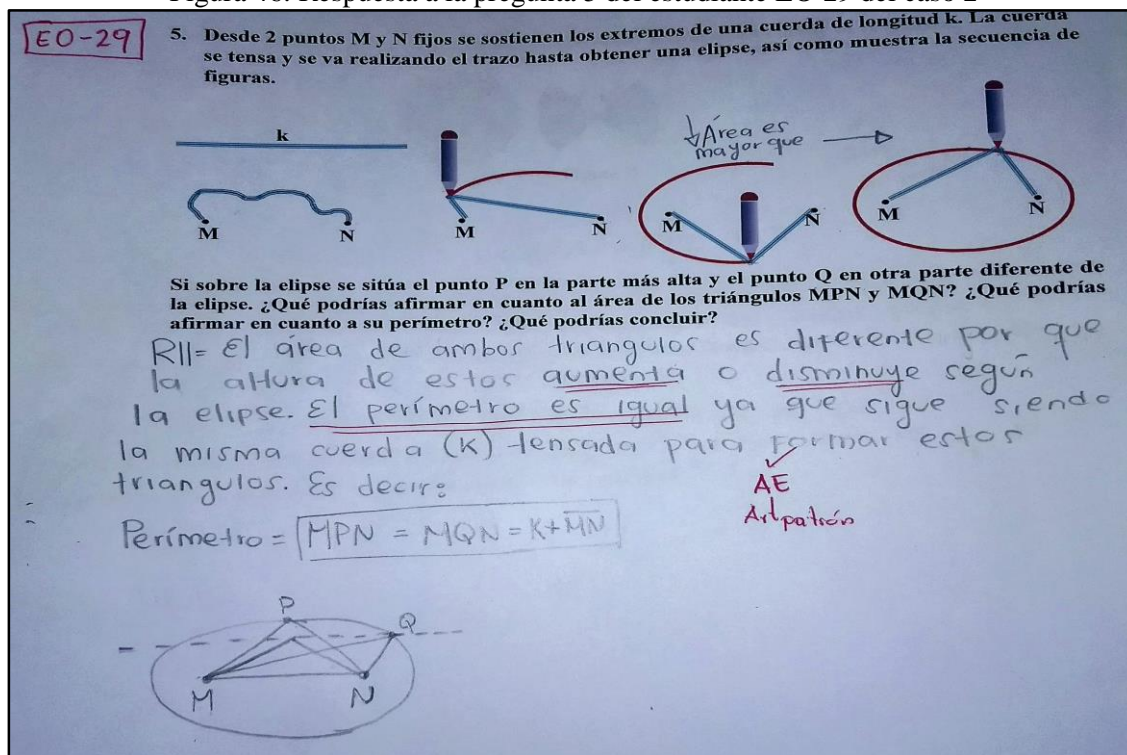 EO-29
5. Desde 2 puntos M y N fijos se sostienen los extremos de una cuerda de longitud k. La cuerda
se tensa y se va realizando el trazo hasta obtener una elipse, así como muestra la secuencia de
figuras.
k
M N
M N
↓Área es
mayor que →
M N
M N
Si sobre la elipse se sitúa el punto P en la parte más alta y el punto Q en otra parte diferente de
la elipse. ¿Qué podrías afirmar en cuanto al área de los triángulos MPN y MQN? ¿Qué podrías
afirmar en cuanto a su perímetro? ¿Qué podrías concluir?
R||= El área de ambos triangulos es diferente por que
la altura de estos aumenta o disminuye según
la elipse. El perímetro es igual ya que sigue siendo
la misma cuerda (K) tensada para formar estos
triangulos. Es decir:
AE
Art patrón
Perímetro = MPN = MQN = K + MN
P
Q
M N